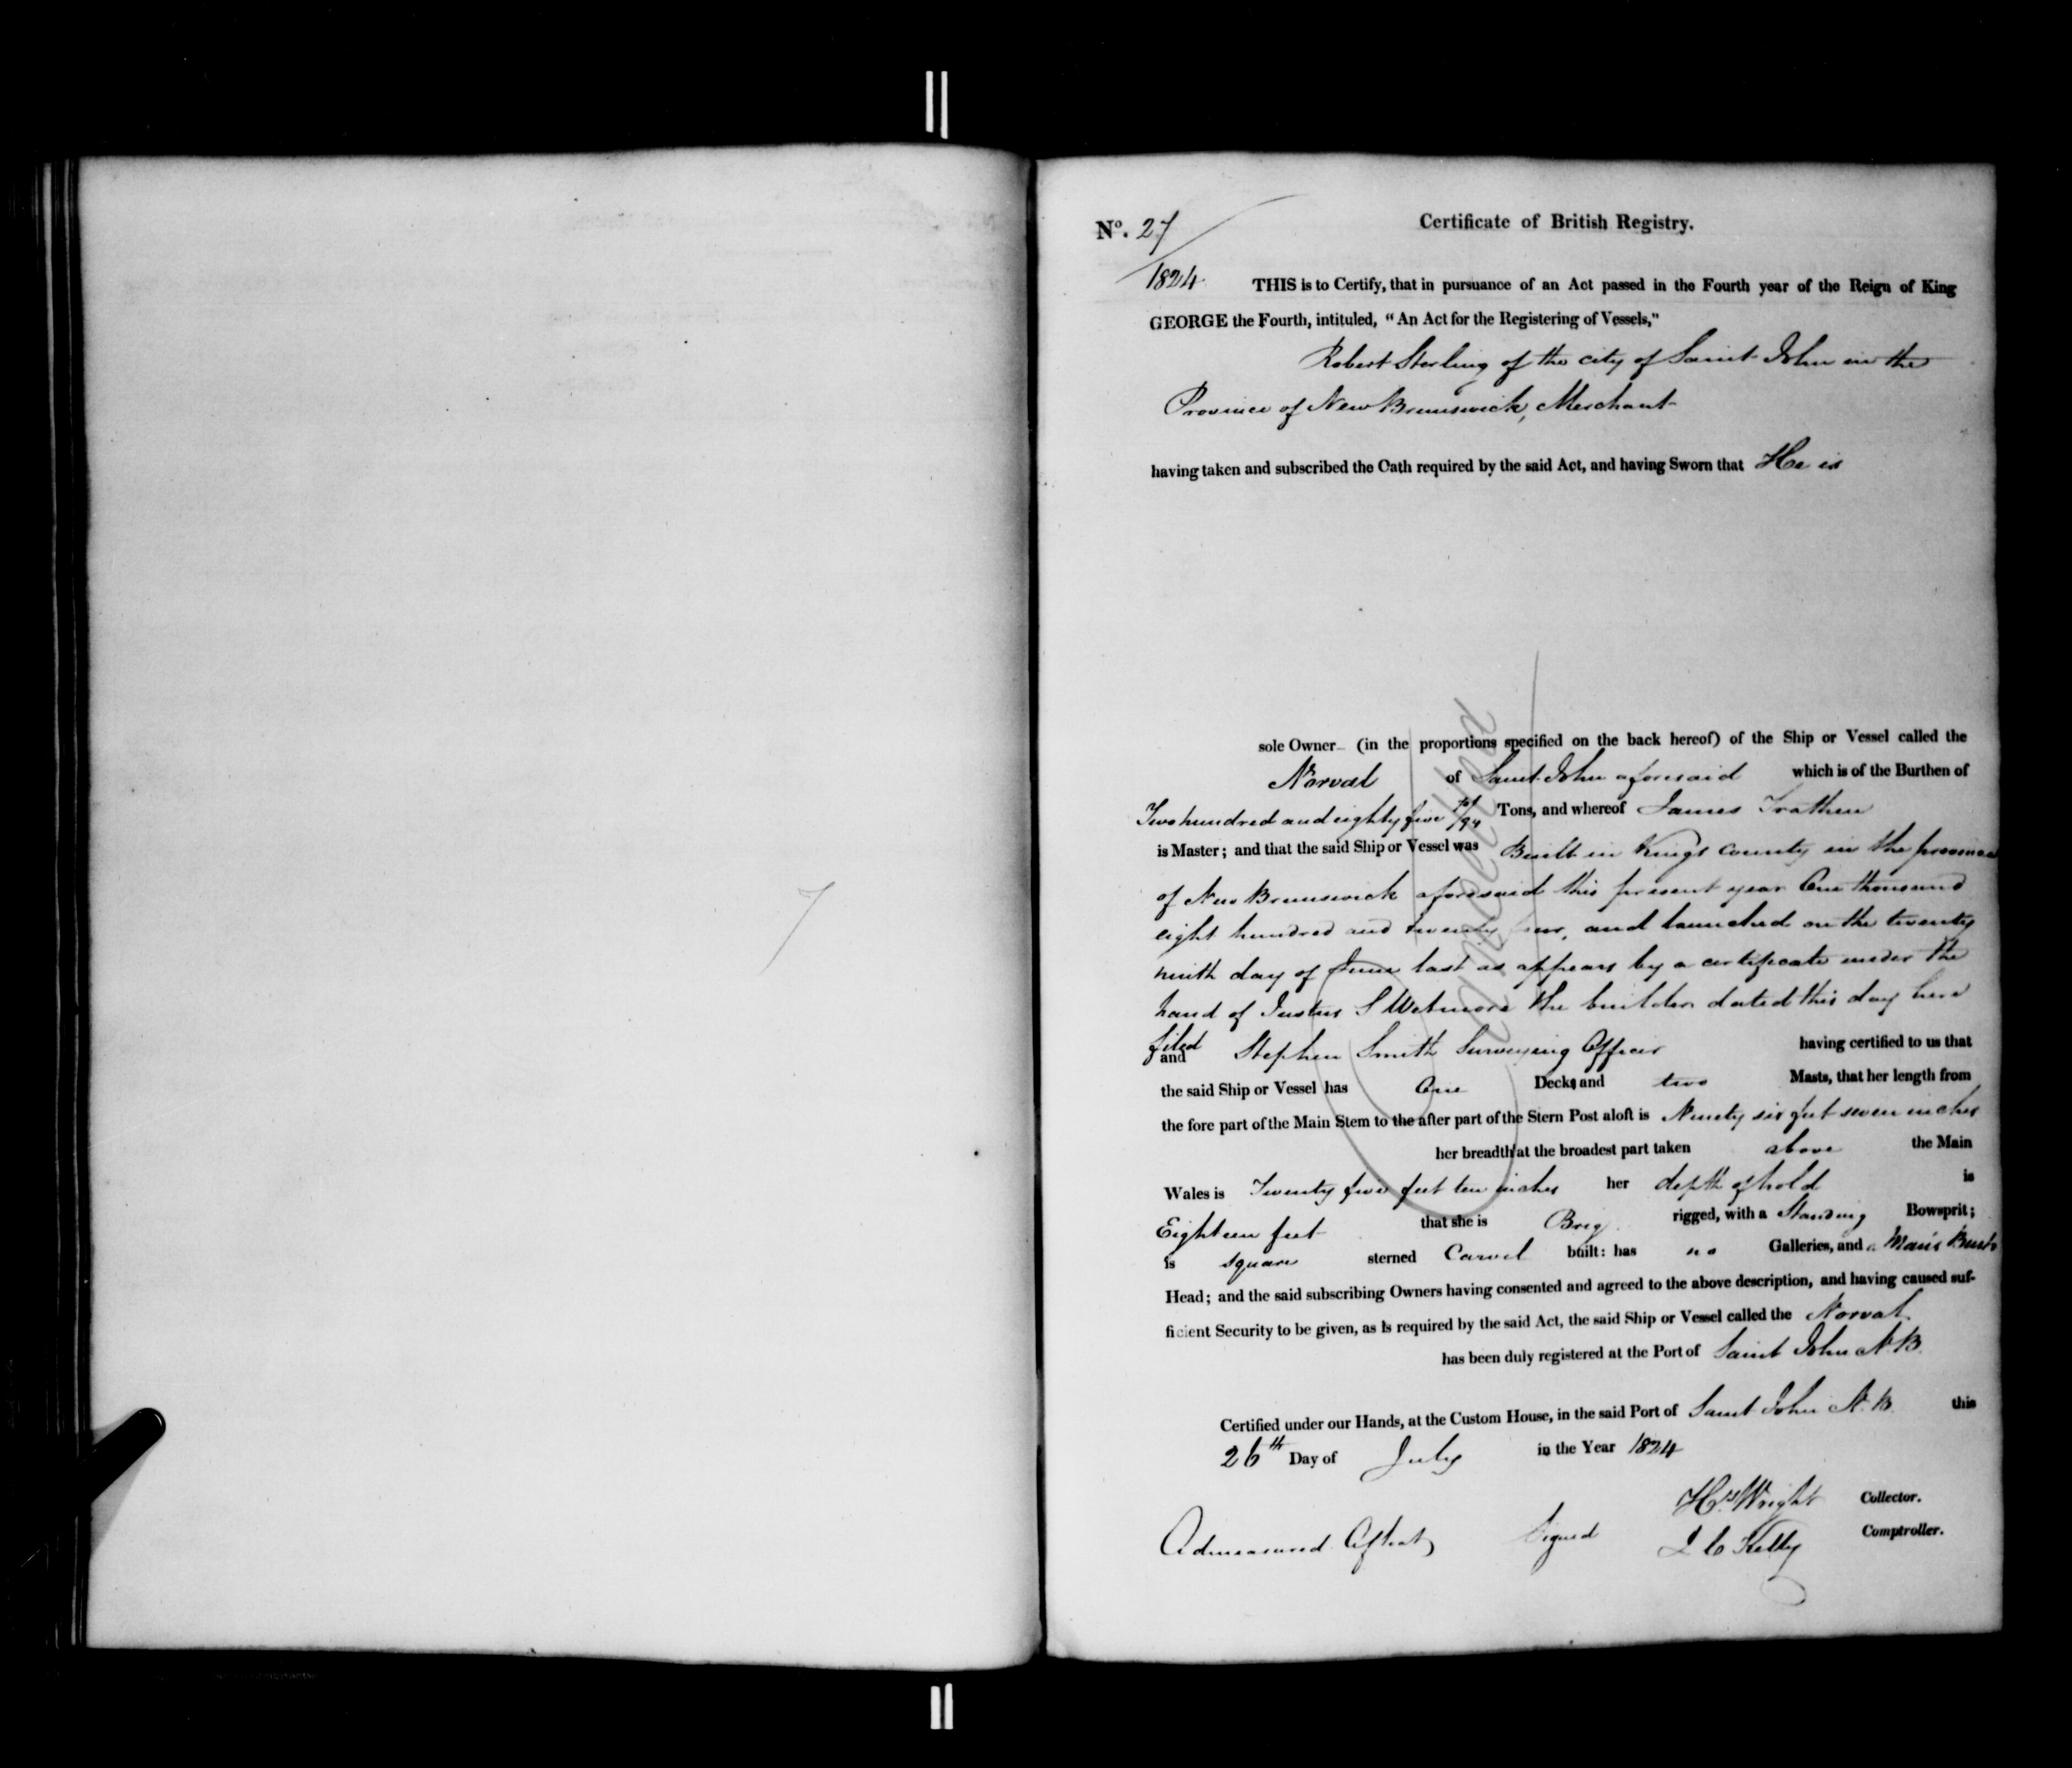 7
Nº. 27
Certificate of British Registry.
1824
THIS is to Certify, that in pursuance of an Act passed in the Fourth year of the Reign of King
GEORGE the Fourth, intituled, "An Act for the Registering of Vessels,"
Robert Sterling of the city of Saint John in the
Province of New Brunswick, Merchant
having taken and subscribed the Oath required by the said Act, and having Sworn that He is
sole Owner (in the proportions specified on the back hereof) of the Ship or Vessel called the
Norval of Saint John aforesaid which is of the Burthen of
Two hundred and eighty five /94 Tons, and whereof James Trathen
is Master; and that the said Ship or Vessel was Built in Kings County in the province
of New Brunswick aforesaid this present year One thousand
eight hundred and twenty four, and launched on the twenty
ninth day of June last as appears by a certificate under the
hand of Justus S Wetmore the builder dated this day here
filed
and Stephen Smith Surveying Officer having certified to us that
the said Ship or Vessel has One Decks and two Masts, that her length from
the fore part of the Main Stem to the after part of the Stern Post aloft is Ninety six feet seven inches
her breadth at the broadest part taken above the Main
Wales is Twenty five feet ten inches her depth of hold is
Eighteen feet that she is Brig rigged, with a Standing Bowsprit;
is square sterned Carvel built: has no Galleries, and a Man's Bust
Head; and the said subscribing Owners having consented and agreed to the above description, and having caused suf-
ficient Security to be given, as is required by the said Act, the said Ship or Vessel called the Norval
has been duly registered at the Port of Saint John N B.
Certified under our Hands, at the Custom House, in the said Port of Saint John N. B. this
26th Day of July in the Year 1824
Hy Wright Collector.
Admeasured Afloat Signed J C Kelly Comptroller.
Cancelled